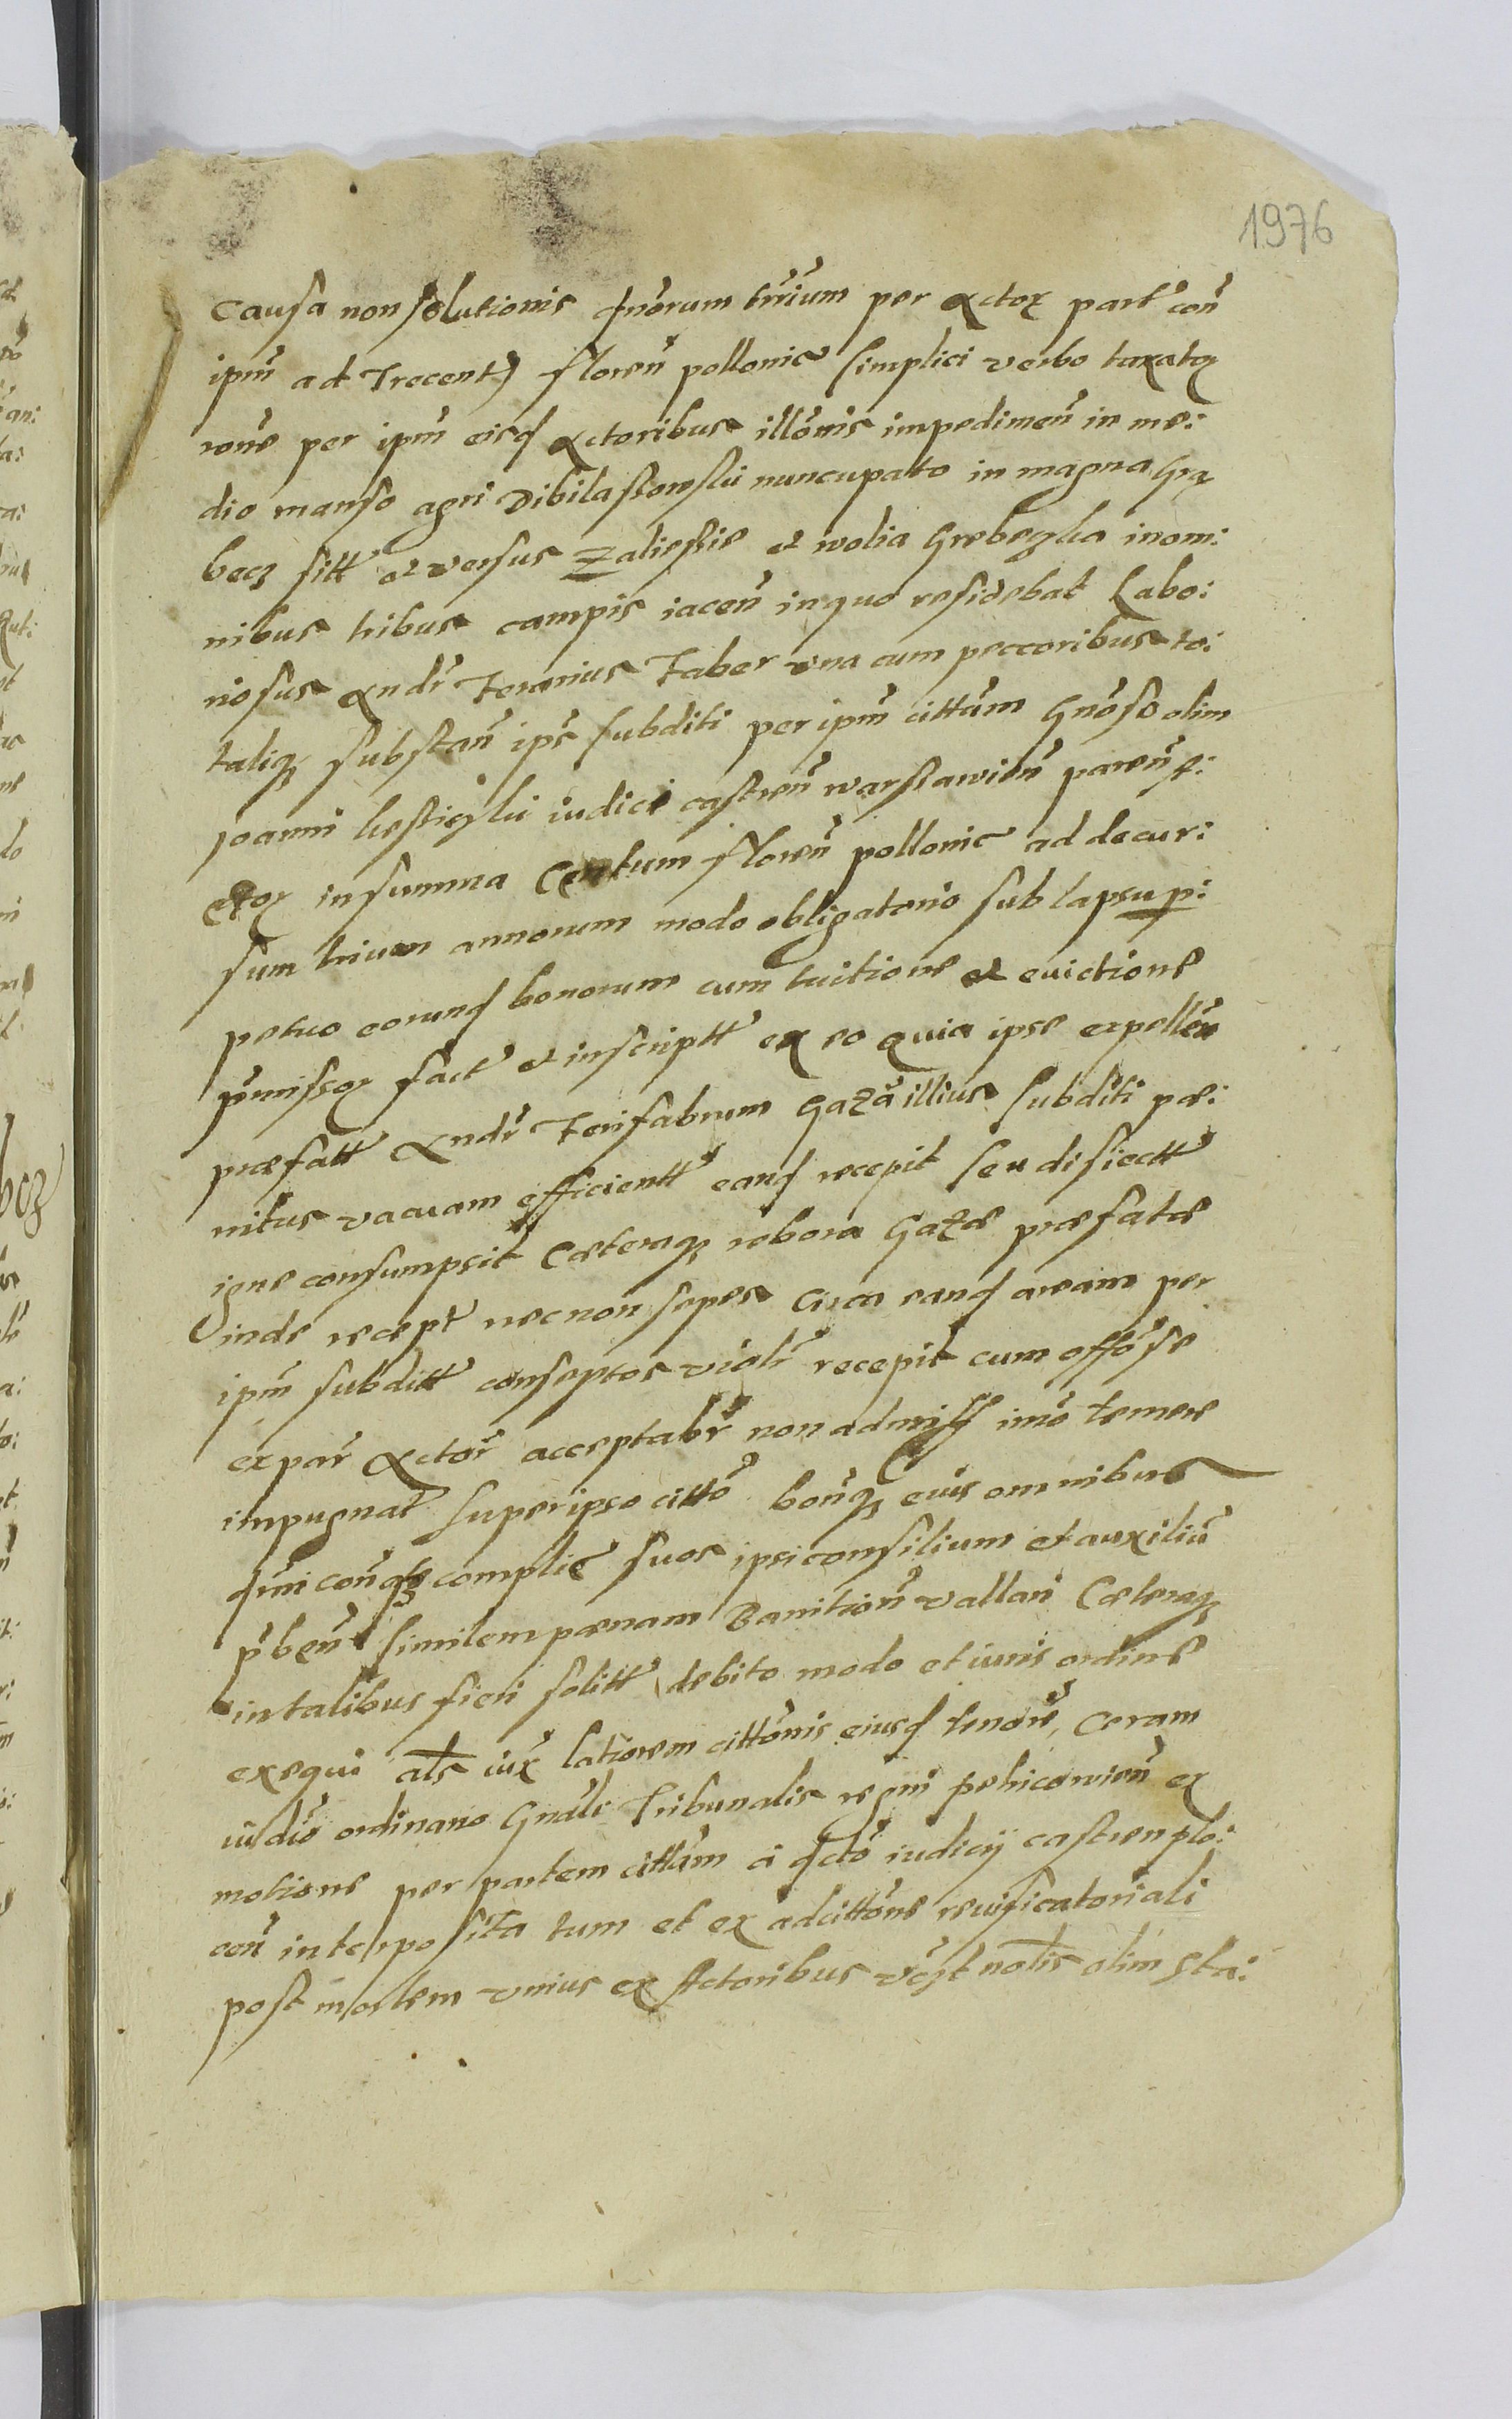 1976
causa non solutionis damnorum trium per actoꝝ part con̄
ipm̄ ad Trecent floren̄ pollonic simplici verbo taxatoꝝ
rōne per ipm̄ eisd actoribus illōnis impedimen̄ in me:
dio manso agri Dibilassowski nuncupato in magna Grę
becz sitt et versus Zaliessie et wolia Grebeczka in om:
nibus tribus campis iacen̄ in quo residebat Labo:
riosus Andr̄ Ferarius Faber vna cum peccoribus to:
taliq substan̄ ips subditi per ipm̄ cittum Gnōso olim
Joanni lesticzki iudici castren̄ warssawien̄ paren̄
actoꝝ in summa Centum floren̄ pollonic ad decur:
sum trium annorum modo obligatorio sub lapsu p:
petuo eorund bonorum cum tuitione et evictione
p̄missoꝝ fact et inscriptt ex eo quia ipse expellen̄
præfatt Andr̄ Ferifabrum Gazā illius subditi pe:
nitus vacuam efficientt eand recepit seu disiectt
igne consumpsit Cæteraq robora Gazæ præfatæ
inde recept necnon sepes circa eand aream per
ipm̄ subditt conseptos violr̄ recepit cum offōse
ex par̄ Actor̄ acceptabr̄ non admiss imō temere
impugnat super ipso cittō bonisq eius omnibus
complic suos ipsi consilium et auxiliū
p̄ben̄ similem pænam Banition̄ vallari Cæteraq
in talibus fieri solitt debito modo et iuris ordine
exequi als iux latiorem cittōnis eiusd tenorē, coram
iudic̄ ordinario Gnāli Tribunalis regni petricowien̄ ex
motione per partem cittām a dctō iudicij castren plo:
cen̄ interposita tum et ex adcittōne reuificatoriali
post mortem vnius ex Actoribus vczt nobis olim sta: